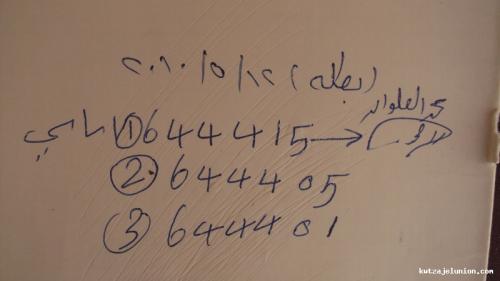 (بطاقه) ٢٠١٠/٥/١٢
سامي ① 644415 → محمد العلوان
② 644405
③ 644401
kwtzajelunion.com